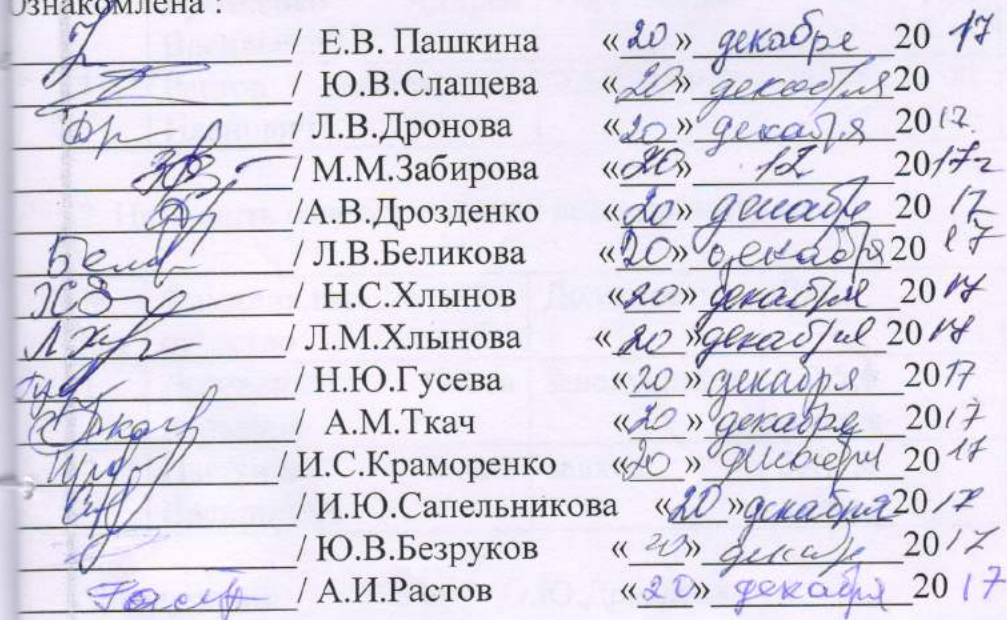 Ознакомлена :
/ Е.В. Пашкина «20» декабря 20 17
/ Ю.В.Слащева «20» декабря 20
/ Л.В.Дронова «20» декабря 2017
/ М.М.Забирова «20» 12 2017г
/А.В.Дрозденко «20» декабря 20 17
/ Л.В.Беликова «20» декабря 20 17
/ Н.С.Хлынов «20» декабря 20 17
/ Л.М.Хлынова «20» декабря 20 17
/ Н.Ю.Гусева «20» декабря 2017
/ А.М.Ткач «20 » декабря 2017
/ И.С.Краморенко «20 » декабря 20 17
/ И.Ю.Сапельникова «20 »декабря2017
/ Ю.В.Безруков « 20» декабр 2017
/ А.И.Растов «20» декабря 20 17